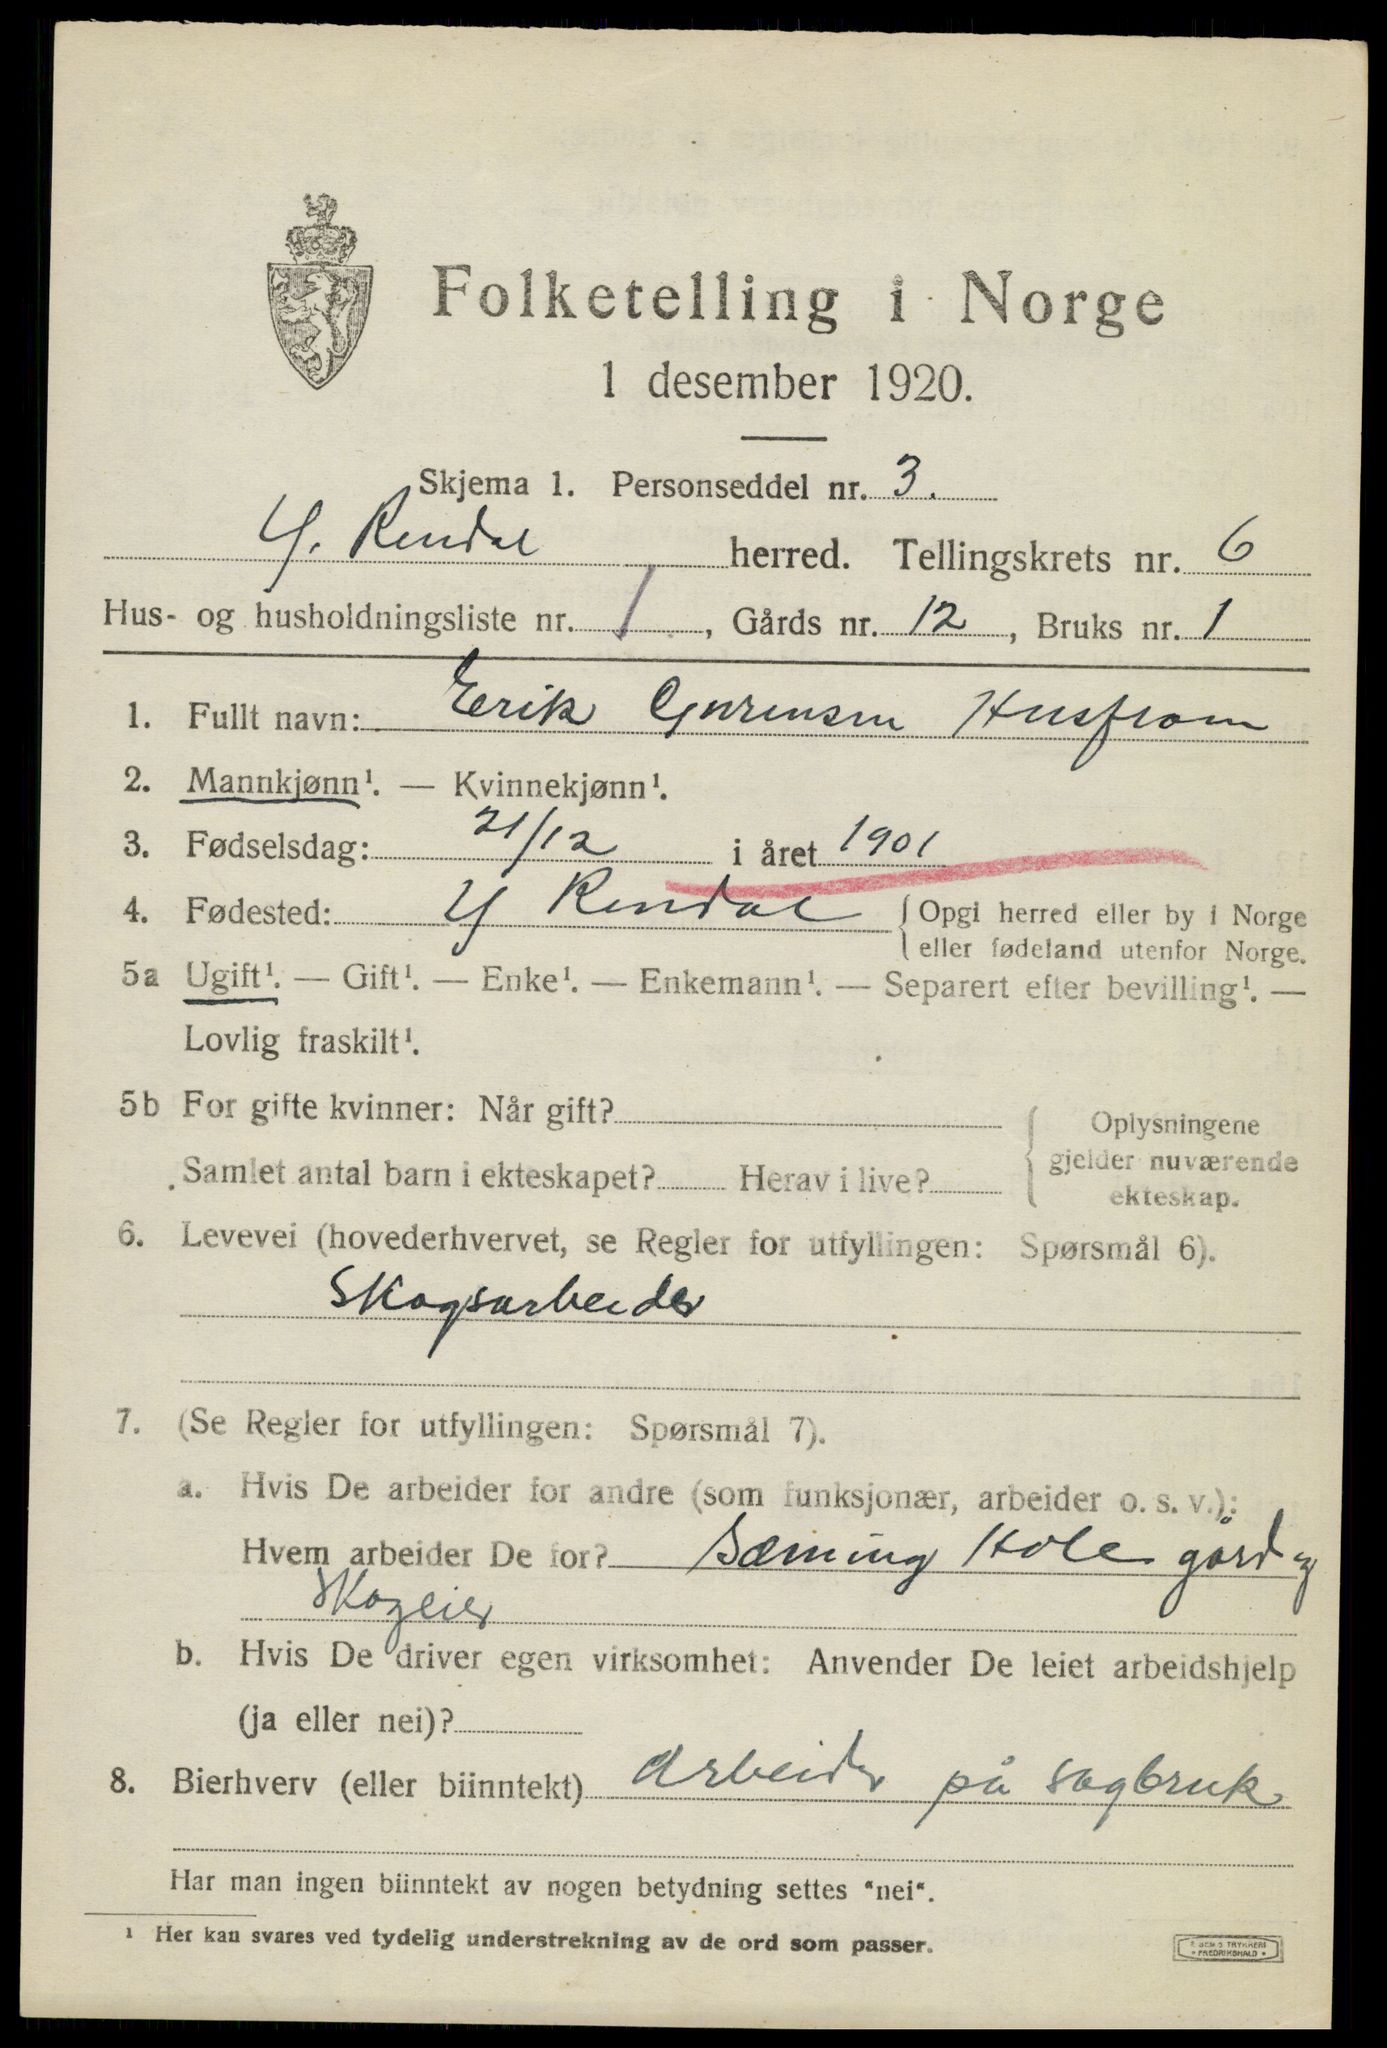 Folketelling i Norge
1 desember 1920.
Skjema 1. Personseddel nr. 3.
Y. Rendal herred. Tellingskrets nr. 6
Hus- og husholdningsliste nr. 1, Gårds nr. 12, Bruks nr. 1
1. Fullt navn: Erik Husfrom
2. Mannkjønn¹. — Kvinnekjønn¹.
3. Fødselsdag: 21/12 i året 1901
4. Fødested: Y Rendal { Opgi herred eller by i Norge
eller fødeland utenfor Norge.
5a Ugift¹. — Gift¹. — Enke¹. — Enkemann¹. — Separert efter bevilling¹. —
Lovlig fraskilt¹.
5b For gifte kvinner: Når gift?
Samlet antal barn i ekteskapet? Herav i live?
{ Oplysningene
gjelder nuværende
ekteskap.
6. Levevei (hovederhvervet, se Regler for utfyllingen: Spørsmål 6).
Skogsarbeider
7. (Se Regler for utfyllingen: Spørsmål 7).
a. Hvis De arbeider for andre (som funksjonær, arbeider o. s. v.):
Hvem arbeider De for? Sæming Hole gård og
Skogeier
b. Hvis De driver egen virksomhet: Anvender De leiet arbeidshjelp
(ja eller nei)?
8. Bierhverv (eller biinntekt) Arbeider på sagbruk
Har man ingen biinntekt av nogen betydning settes "nei".
¹ Her kan svares ved tydelig understrekning av de ord som passer.
TRYKKERI
FREDRIKSHALD